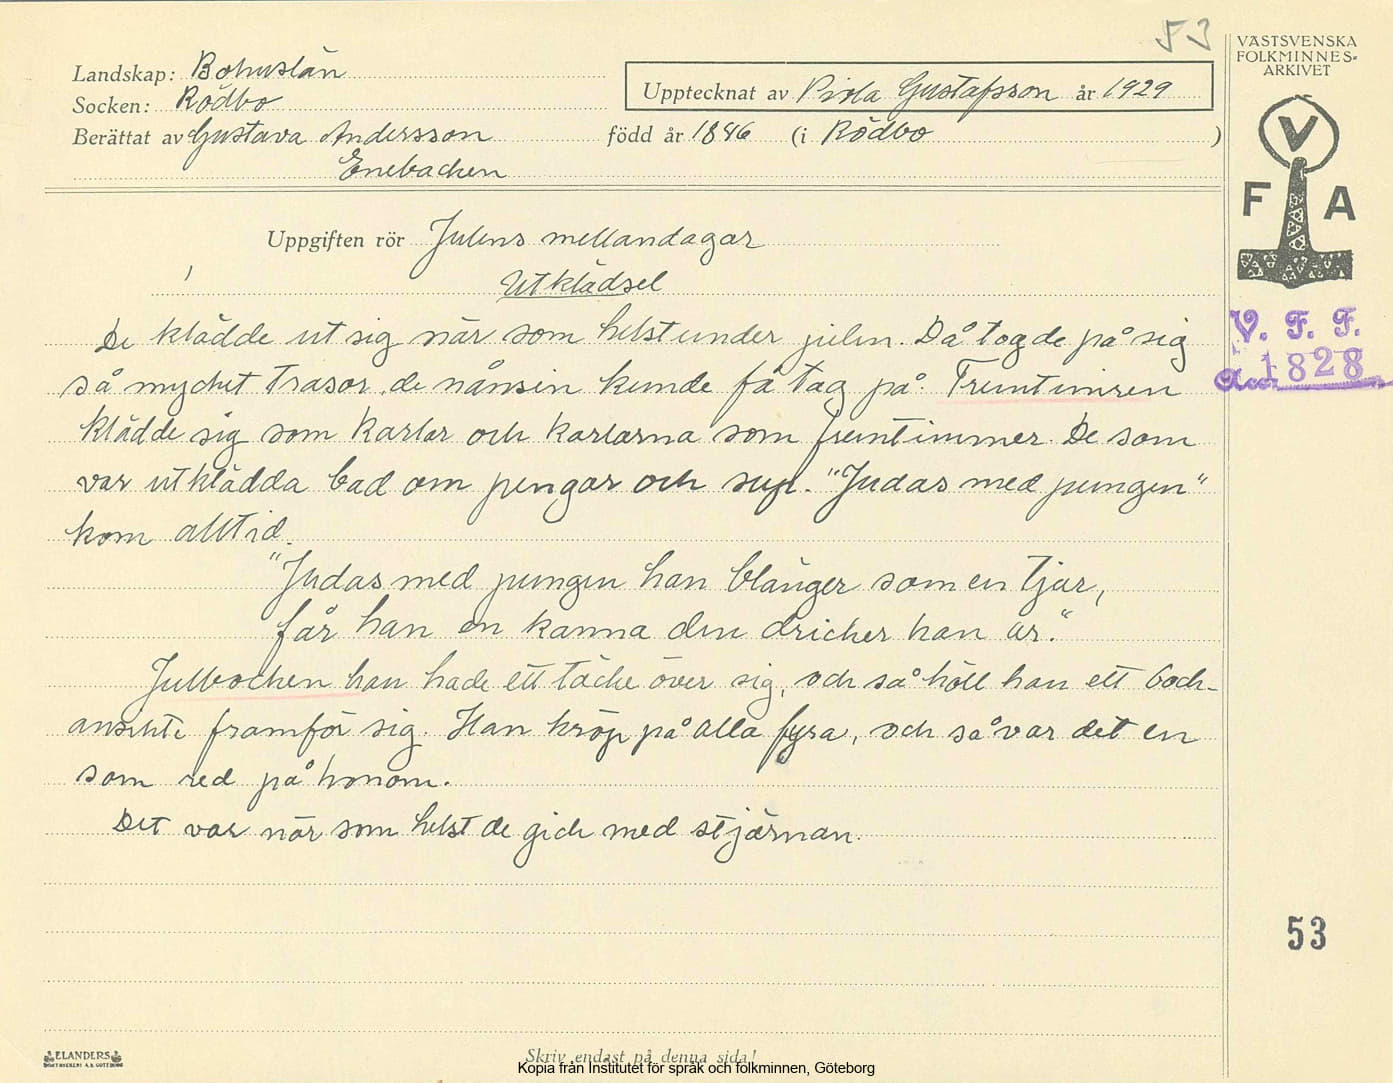 53
VÄSTSVENSKA
FOLKMINNES-
ARKIVET
Landskap: Bohuslän
Socken: Rödbo
Upptecknat av Gustafsson år 1929
Berättat av Gustava Andersson född år 1846 (i Rödbo )
Enebacken
V
F A
Uppgiften rör Julens mellandagar
Utklädsel
De klädde ut sig när som helst under julen. Då tog de på sig
så mycket trasor de nånsin kunde få tag på. Fruntimren
klädde sig som karlar och karlarna som fruntimmer. De som
var utklädda bad om pengar och sup. "Judas med pungen"
kom alltid.
"Judas med pungen han blänger som en tjur,
får han en kanna den dricker han ur."
Julbocken han hade ett täcke över sig, och så höll han ett bock-
ansikte framför sig. Han kröp på alla fyra, och så var det en
som red på honom.
Det var när som helst de gick med stjärnan.
V. F. F.
Acc. 1828
53
ELANDERS
Skriv endast på denna sida!
Kopia från Institutet för språk och folkminnen, Göteborg